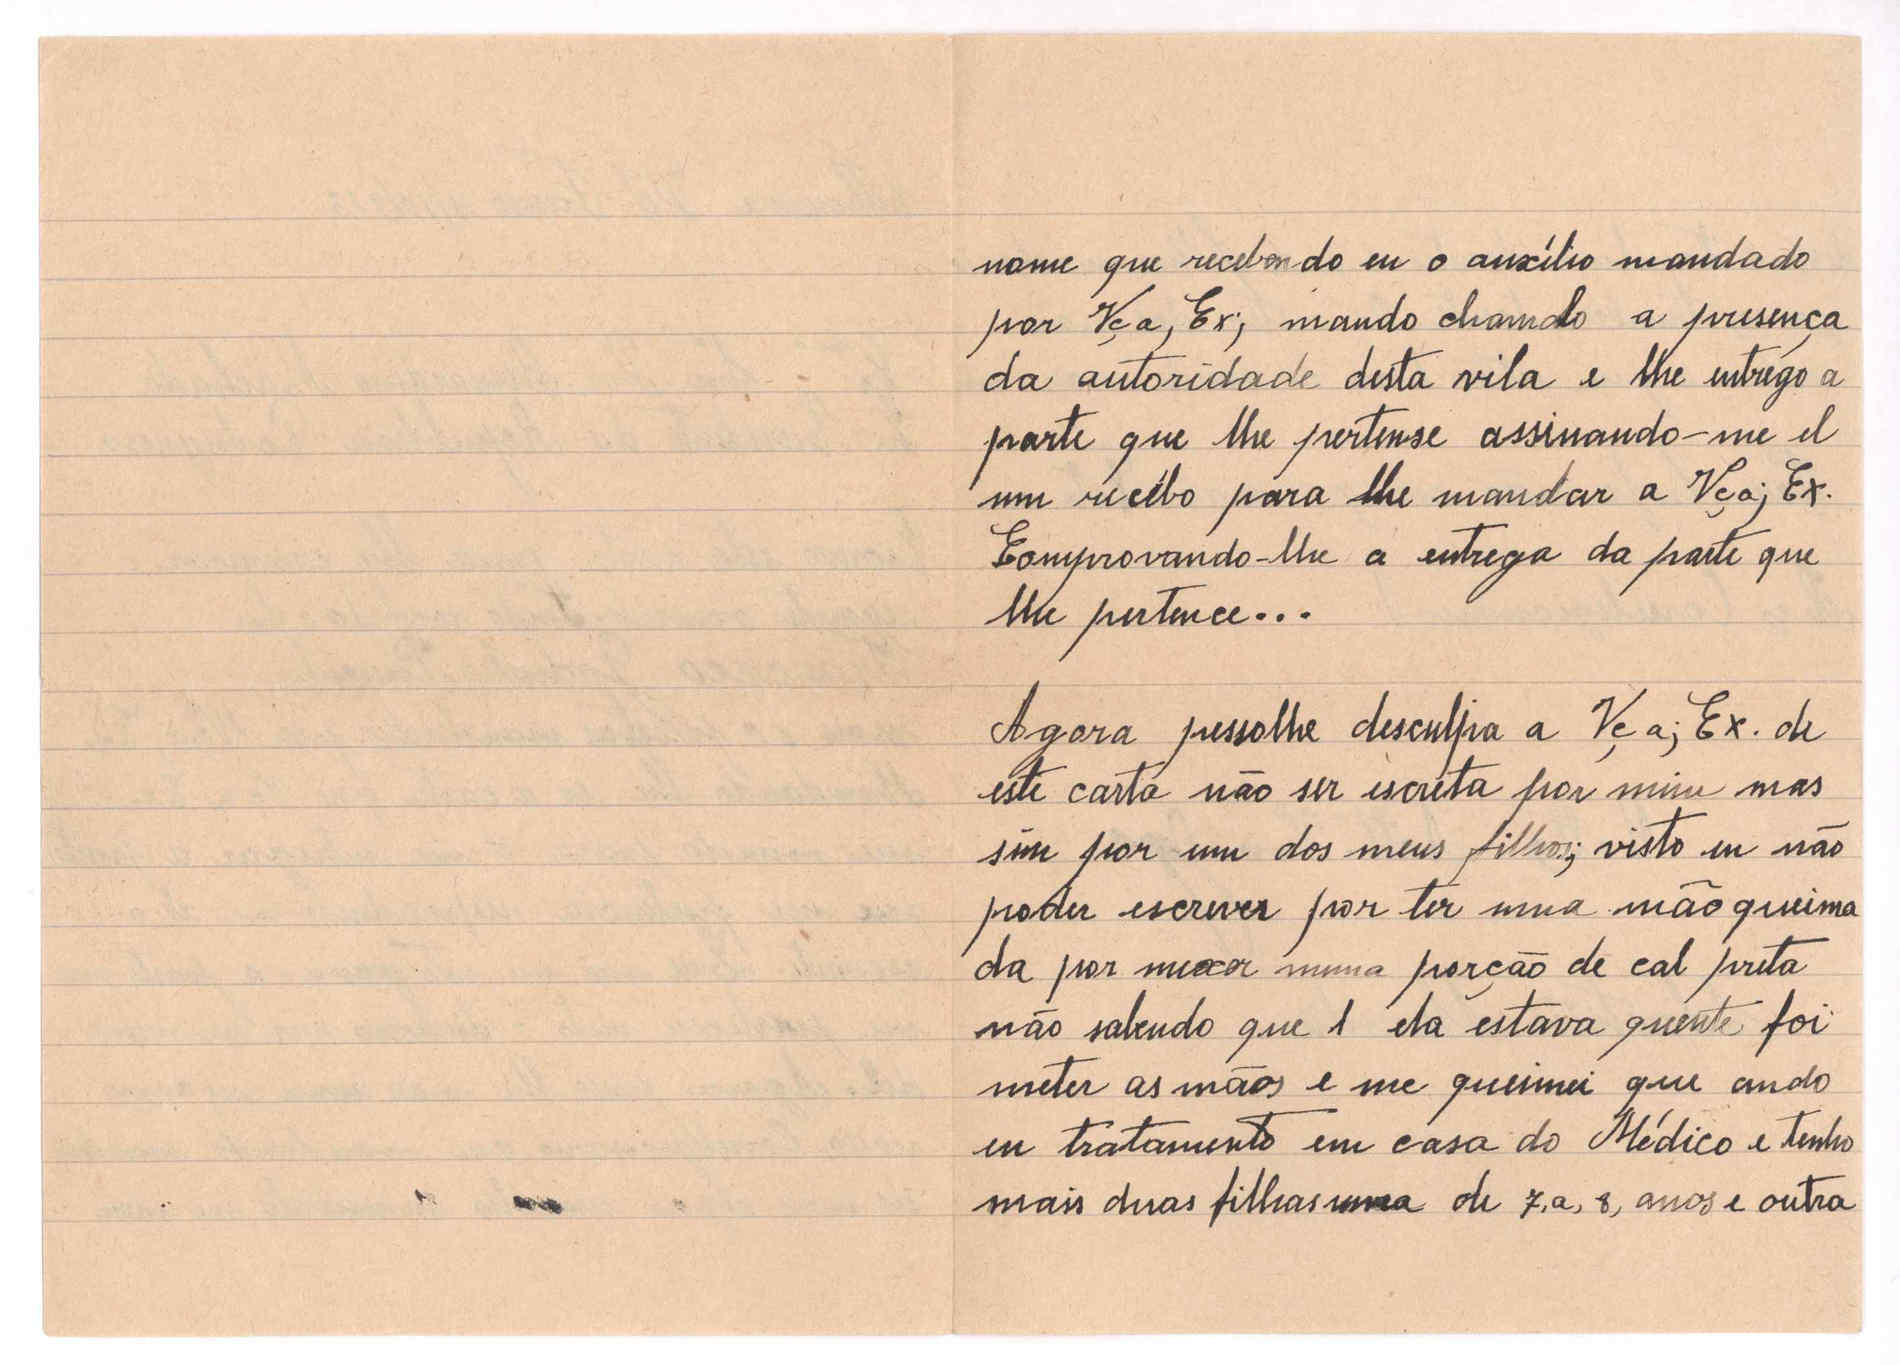 nome que recebendo eu o auxílio mandado
por Vç a, Ex; mando chamalo a presença
da autoridade desta vila e lhe entrego a
parte que lhe pertense assinando-me el
um recibo para lhe mandar a Vç a; Ex.
Comprovando-lhe a entrega da parte que
lhe pertence...
Agora pessolhe desculpa a Vç a; Ex. de
este carta não ser escreta por mim mas
sim por um dos meus filhos; visto eu não
poder escrever por ter uma mão queima
da por mexer numa porção de cal preta
não sabendo que ela estava quente foi
meter as mãos e me queimei que ando
en tratamento em casa do Médico e tenho
mais duas filhas uma de 7, a, 8, anos e outra